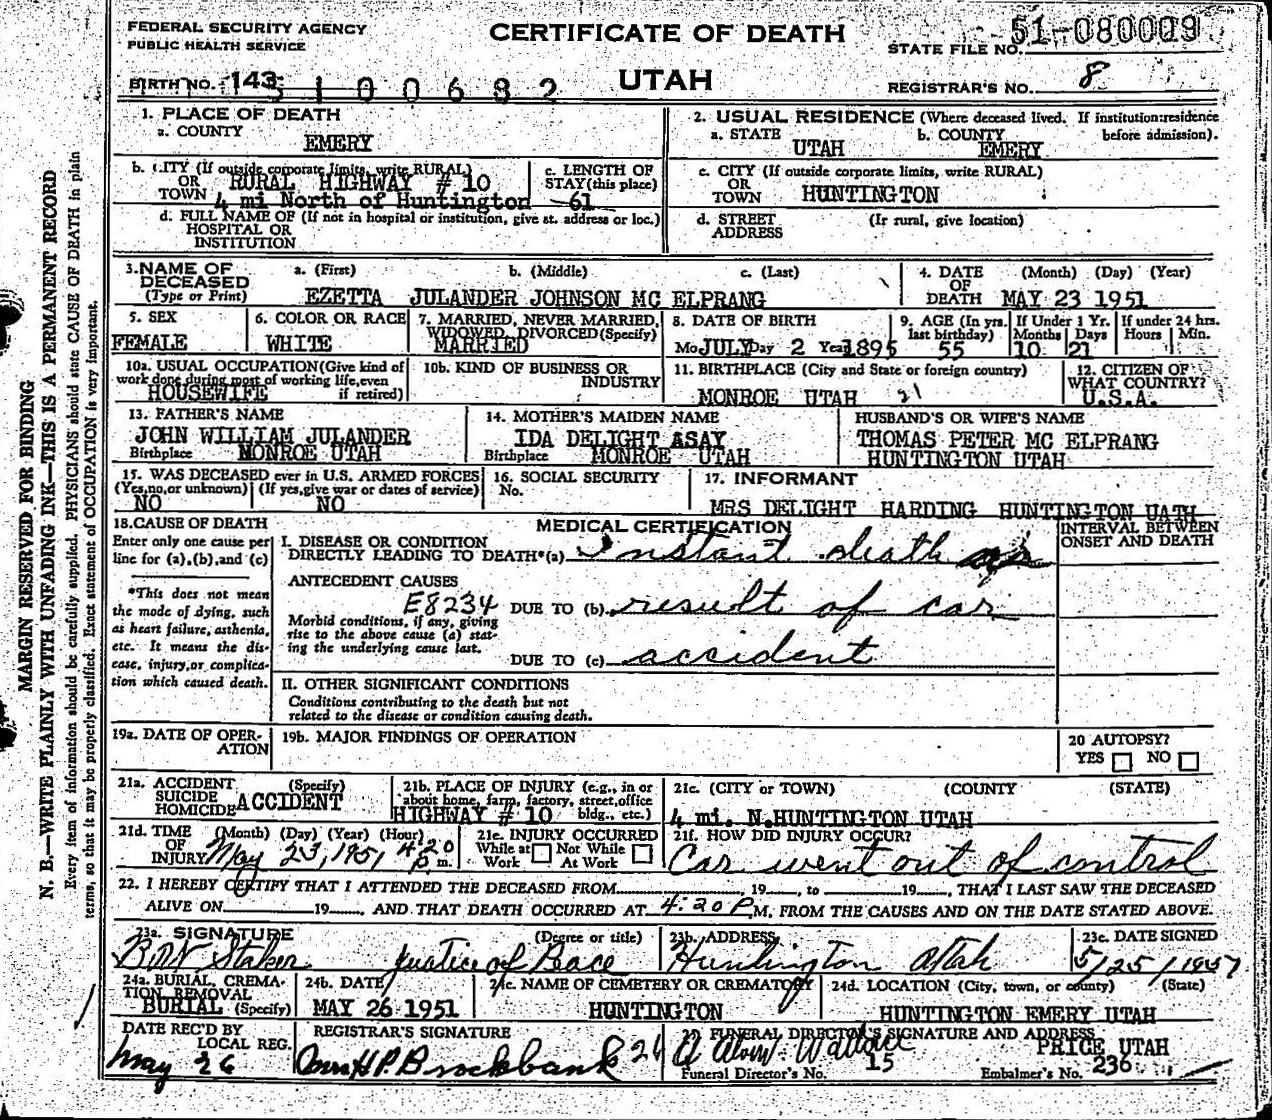 FEDERAL SECURITY AGENCY
PUBLIC HEALTH SERVICE
CERTIFICATE OF DEATH
UTAH
STATE FILE NO. 51-080009
REGISTRAR'S NO. 8
BIRTH NO. 143 5100682
1. PLACE OF DEATH
a. COUNTY
EMERY
b. CITY (If outside corporate limits, write RURAL)
OR
TOWN
RURAL HIGHWAY # 10
4 mi North of Huntington
c. LENGTH OF
STAY (this place)
61
d. FULL NAME OF (If not in hospital or institution, give st. address or loc.)
HOSPITAL OR
INSTITUTION
2. USUAL RESIDENCE (Where deceased lived. If institution: residence
before admission).
a. STATE
UTAH
b. COUNTY
EMERY
c. CITY (If outside corporate limits, write RURAL)
OR
TOWN
HUNTINGTON
d. STREET
ADDRESS
(Ir rural, give location)
3. NAME OF
DECEASED
(Type or Print)
a. (First) b. (Middle) c. (Last)
EZETTA JULANDER JOHNSON MC ELPRANG
4. DATE
OF
DEATH
(Month) (Day) (Year)
MAY 23 1951
5. SEX
FEMALE
6. COLOR OR RACE
WHITE
7. MARRIED, NEVER MARRIED,
WIDOWED, DIVORCED (Specify)
MARRIED
8. DATE OF BIRTH
Mo JULY Day 2 Year 1895
9. AGE (In yrs.
last birthday)
55
If Under 1 Yr.
Months Days
10 21
If under 24 hrs.
Hours Min.
10a. USUAL OCCUPATION (Give kind of
work done during most of working life, even
if retired)
HOUSEWIFE
10b. KIND OF BUSINESS OR
INDUSTRY
11. BIRTHPLACE (City and State or foreign country)
MONROE UTAH 21
12. CITIZEN OF
WHAT COUNTRY?
U.S.A.
13. FATHER'S NAME
JOHN WILLIAM JULANDER
Birthplace MONROE UTAH
14. MOTHER'S MAIDEN NAME
IDA DELIGHT ASAY
Birthplace MONROE UTAH
HUSBAND'S OR WIFE'S NAME
THOMAS PETER MC ELPRANG
HUNTINGTON UTAH
15. WAS DECEASED ever in U.S. ARMED FORCES
(Yes, no, or unknown) (If yes, give war or dates of service)
NO NO
16. SOCIAL SECURITY
No.
17. INFORMANT
MRS DELIGHT HARDING HUNTINGTON UATH
18. CAUSE OF DEATH
Enter only one cause per
line for (a), (b), and (c)
*This does not mean
the mode of dying, such
as heart failure, asthenia,
etc. It means the dis-
ease, injury, or complica-
tion which caused death.
MEDICAL CERTIFICATION
INTERVAL BETWEEN
ONSET AND DEATH
I. DISEASE OR CONDITION
DIRECTLY LEADING TO DEATH* (a) Instant death as
ANTECEDENT CAUSES
E8234
DUE TO (b) result of car
Morbid conditions, if any, giving
rise to the above cause (a) stat-
ing the underlying cause last.
DUE TO (c) accident
II. OTHER SIGNIFICANT CONDITIONS
Conditions contributing to the death but not
related to the disease or condition causing death.
19a. DATE OF OPER-
ATION
19b. MAJOR FINDINGS OF OPERATION
20 AUTOPSY?
YES NO
21a. ACCIDENT (Specify)
SUICIDE
HOMICIDE ACCIDENT
21b. PLACE OF INJURY (e.g., in or
about home, farm, factory, street, office
bldg., etc.)
HIGHWAY # 10
21c. (CITY or TOWN) (COUNTY) (STATE)
4 mi. N. HUNTINGTON UTAH
21d. TIME (Month) (Day) (Year) (Hour)
OF
INJURY May 23, 1951 4:20 P m.
21e. INJURY OCCURRED
While at Work Not While At Work
21f. HOW DID INJURY OCCUR?
Car went out of control
22. I HEREBY CERTIFY THAT I ATTENDED THE DECEASED FROM , 19 , to 19 , THAT I LAST SAW THE DECEASED
ALIVE ON 19 , AND THAT DEATH OCCURRED AT 4:20 P M, FROM THE CAUSES AND ON THE DATE STATED ABOVE.
23a. SIGNATURE (Degree or title)
Staker Justice of Peace
23b. ADDRESS
Huntington Utah
23c. DATE SIGNED
5/25/1951
24a. BURIAL, CREMA-
TION, REMOVAL
BURIAL (Specify)
24b. DATE
MAY 26 1951
24c. NAME OF CEMETERY OR CREMATORY
HUNTINGTON
24d. LOCATION (City, town, or county) (State)
HUNTINGTON EMERY UTAH
DATE REC'D BY
LOCAL REG.
May 26
REGISTRAR'S SIGNATURE
Mrs H.P. Brockbank 26
25 FUNERAL DIRECTOR'S SIGNATURE AND ADDRESS
Wallace PRICE UTAH
Funeral Director's No. 15
Embalmer's No. 236
MARGIN RESERVED FOR BINDING
N. B.—WRITE PLAINLY WITH UNFADING INK—THIS IS A PERMANENT RECORD
Every item of information should be carefully supplied. PHYSICIANS should state CAUSE OF DEATH in plain
terms, so that it may be properly classified. Exact statement of OCCUPATION is very important.